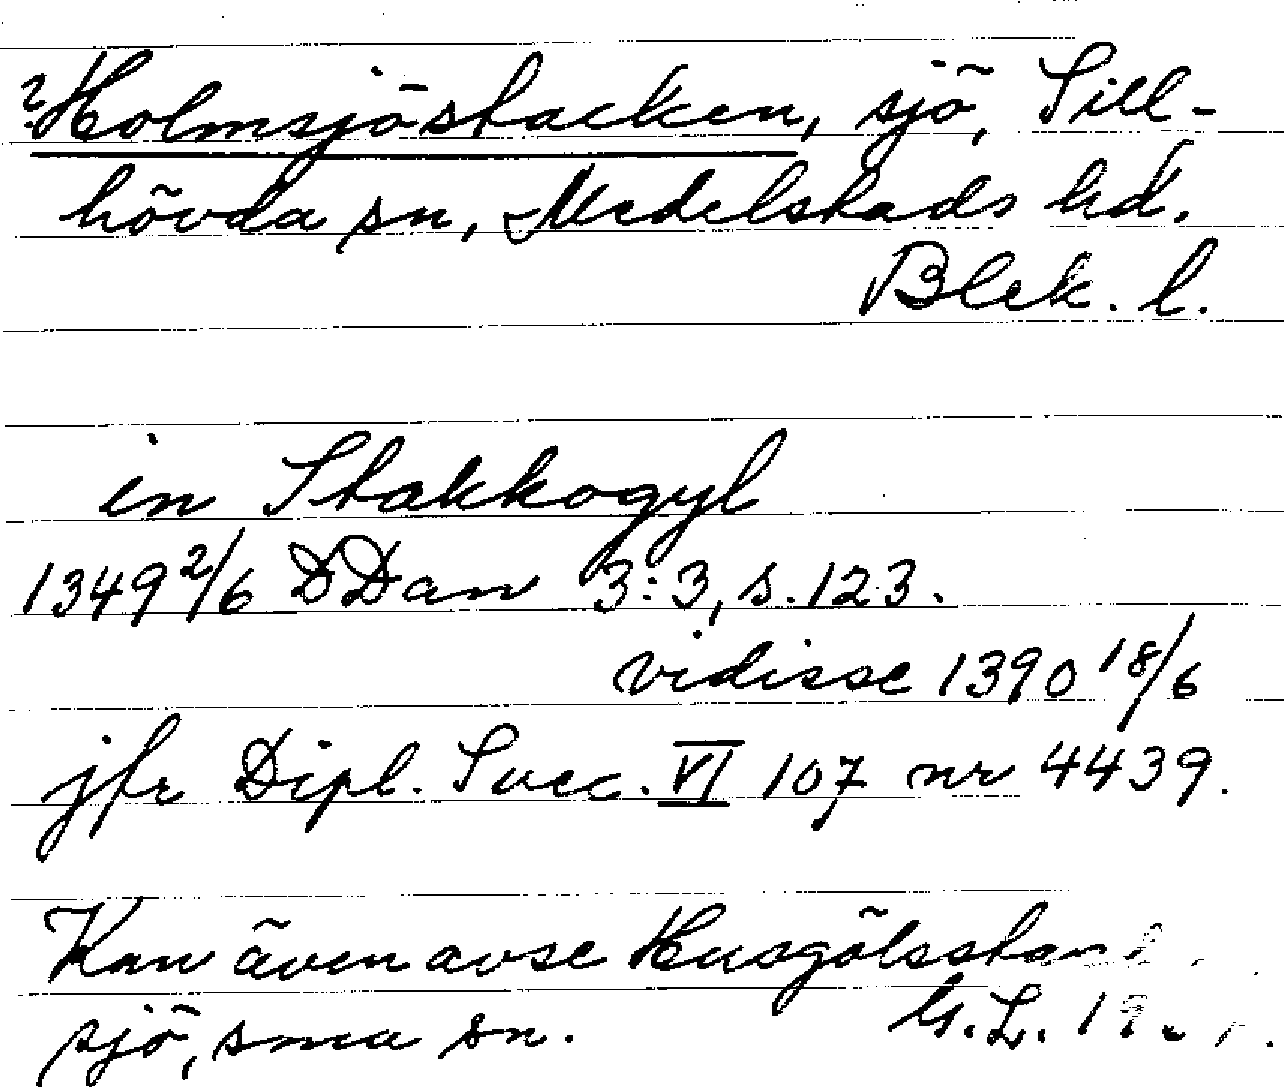 ?Holmsjöstacken, sjö, Sill-
hövda sn, Medelstads hd.
Blek. l.
in Stakkogyl
1349 2/6 DDan 3:3, s. 123.
vidisse 1390 18/6
jfr Dipl. Suec. VI 107 nr 4439.
Kan även avse
sjö, sma sn. G.L.